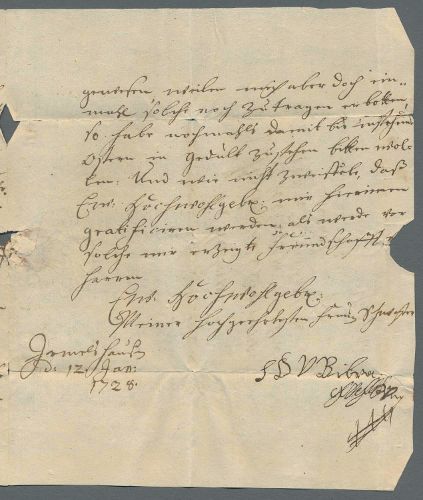 gewesen weilen mich aber doch ein=
mahl solche noch zu tragen erbotten,
so habe nochmahls damit bis instehende
Ostern in gedült zu stehen bitten wol=
len: Und wie nicht zweiffele, daß
Ew. Hochwohlgebr: mir hierinnen
gratificiren werden; als werde vor
solche mir erzeigte freundschafft
harren
Ew. Hochwohlgebr:
Meiner hochgeehrtesten Frau Schwester
Irmelshausen
d. 12 Jan:
1728.
V Bibra